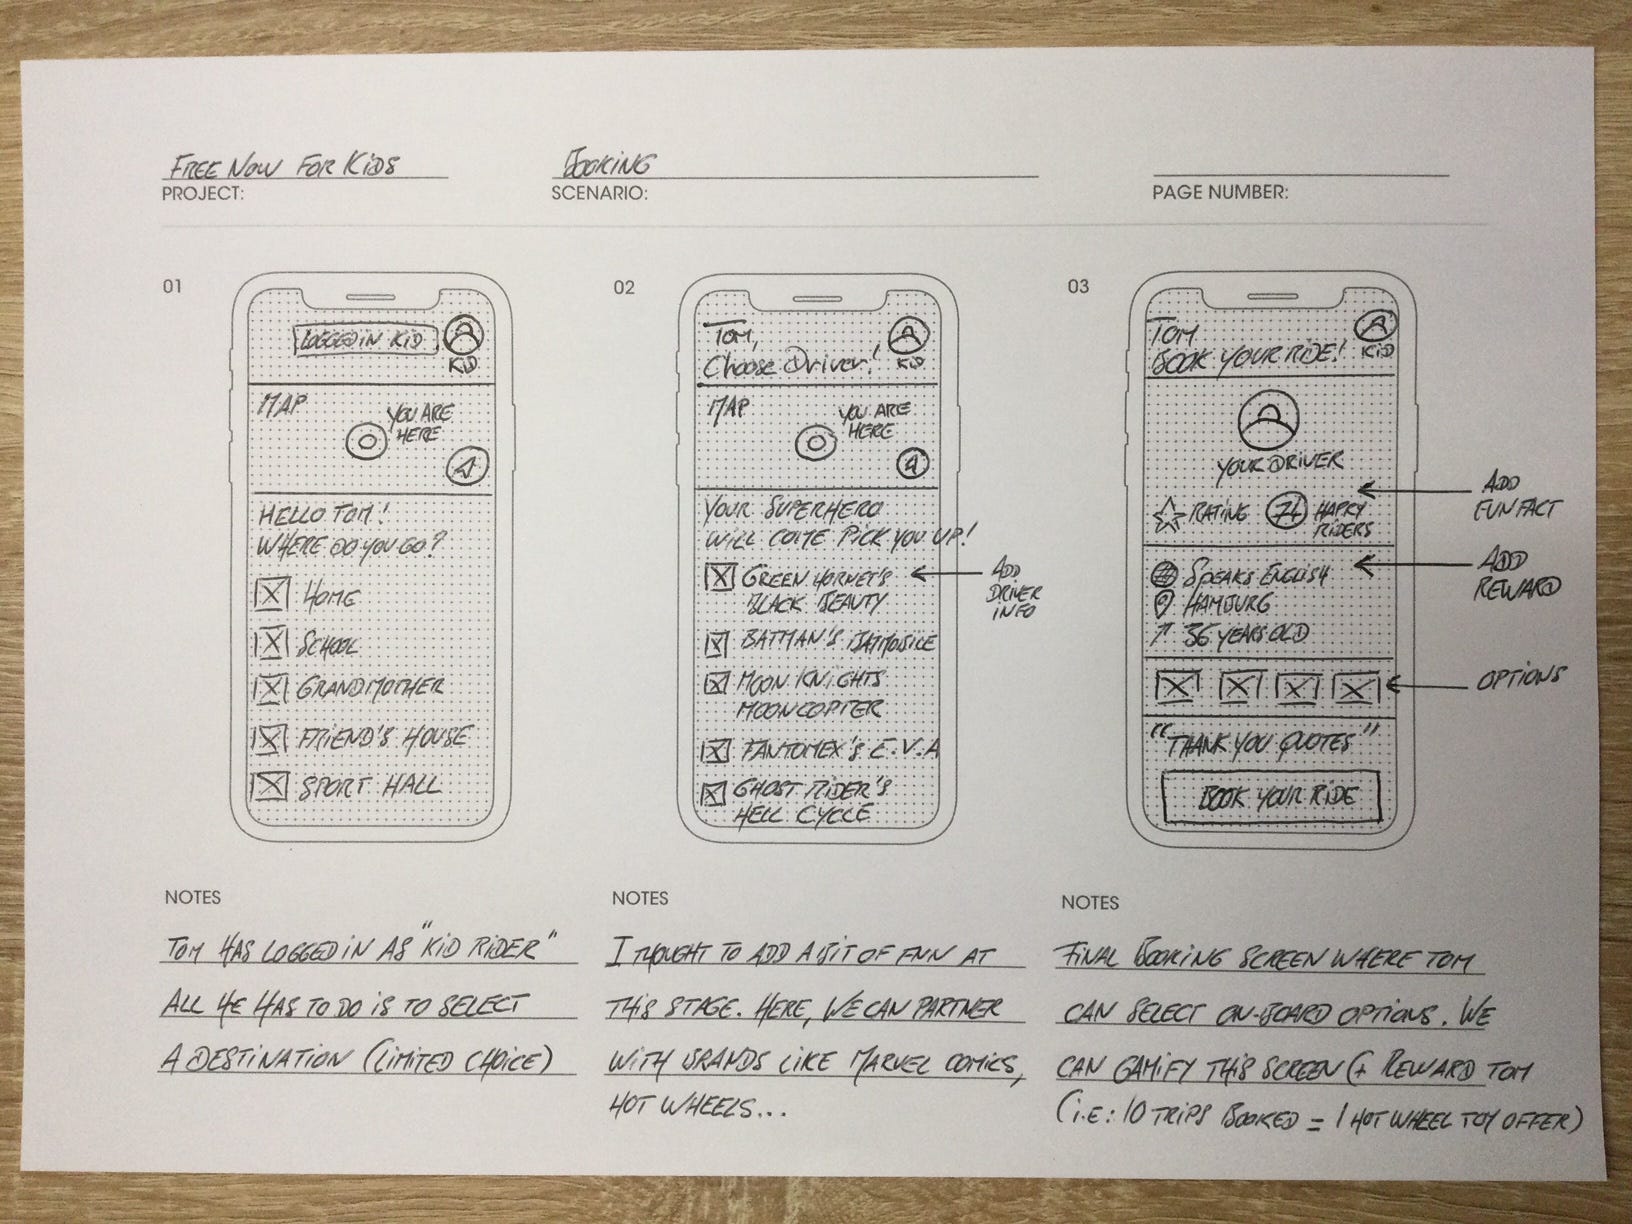 FREE NOW FOR KIDS
PROJECT:
BOOKING
SCENARIO:
PAGE NUMBER:
01
LOGGED IN KID
KID
MAP
YOU ARE
HERE
HELLO TOM!
WHERE DO YOU GO?
HOME
SCHOOL
GRANDMOTHER
FRIEND'S HOUSE
SPORT HALL
NOTES
TOM HAS LOGGED IN AS "KID RIDER"
ALL HE HAS TO DO IS TO SELECT
A DESTINATION (LIMITED CHOICE)
02
TOM,
Choose Driver!
KID
MAP
YOU ARE
HERE
YOUR SUPERHERO
WILL COME PICK YOU UP!
GREEN HORNET'S
BLACK BEAUTY
BATMAN'S BATMOBILE
MOON KNIGHTS
MOONCOPTER
FANTOMEX'S E.V.A
GHOST RIDER'S
HELL CYCLE
ADD
DRIVER
INFO
NOTES
I THOUGHT TO ADD A BIT OF FUN AT
THIS STAGE. HERE, WE CAN PARTNER
WITH BRANDS LIKE MARVEL COMICS,
HOT WHEELS...
03
TOM
BOOK YOUR RIDE!
KID
YOUR DRIVER
RATING
74
HAPPY
RIDERS
SPEAKS ENGLISH
HAMBURG
36 YEARS OLD
"THANK YOU QUOTES"
BOOK YOUR RIDE
ADD
FUN FACT
ADD
REWARD
OPTIONS
NOTES
FINAL BOOKING SCREEN WHERE TOM
CAN SELECT ON-BOARD OPTIONS. WE
CAN GAMIFY THIS SCREEN (+ REWARD TOM
(i.E: 10 TRIPS BOOKED = 1 HOT WHEEL TOY OFFER)